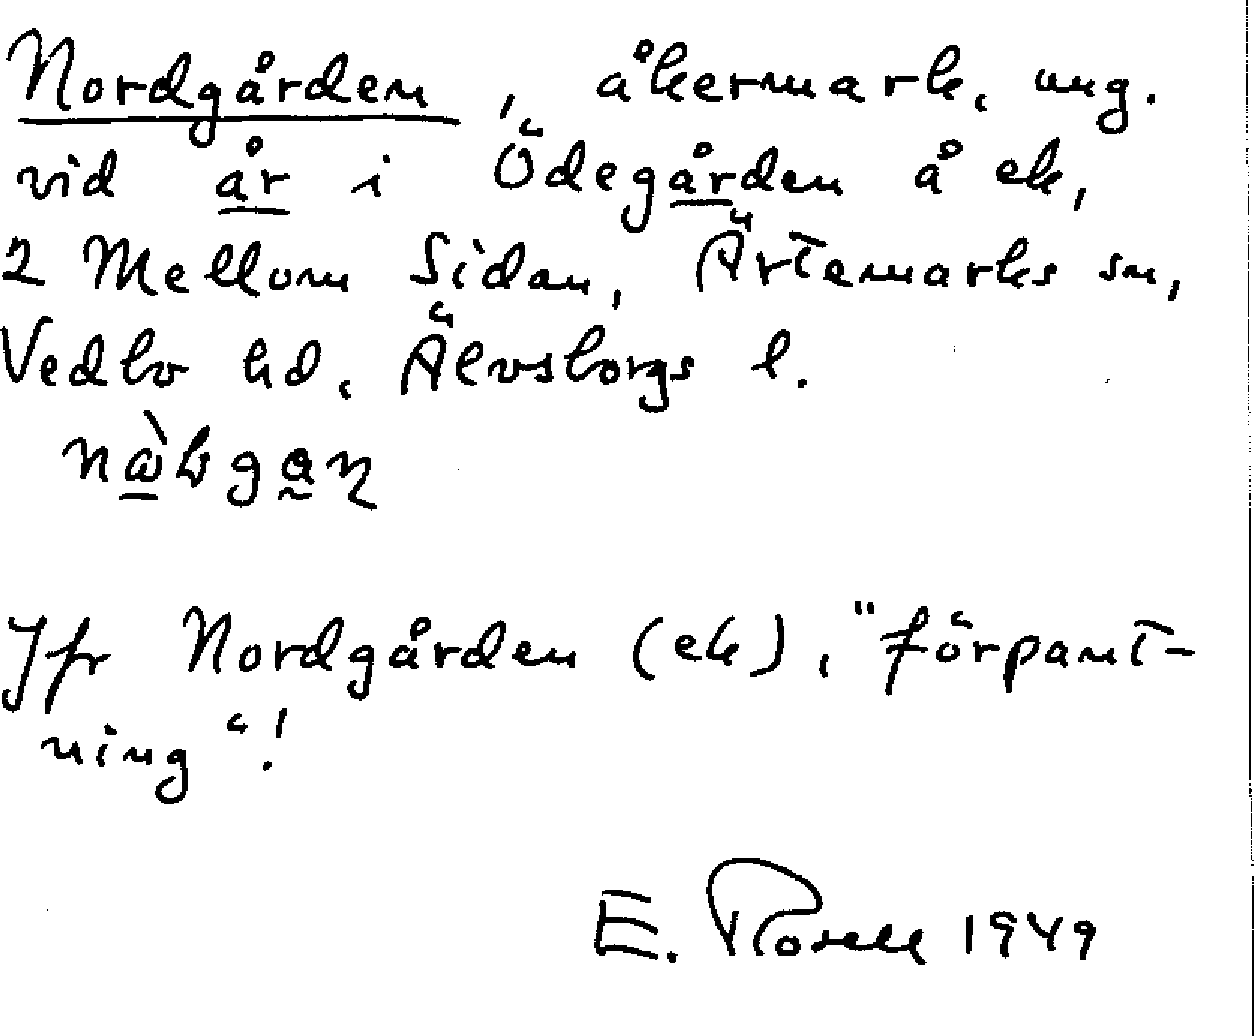 Nordgården, åkermark, ung.
vid år i Ödegården å ek,
2 Mellom Sidan, Ärtemarks sn,
Vedbo hd, Älvsborgs l.
Jfr Nordgården (ek), "förpant-
ning"!
E. Rosell 1949